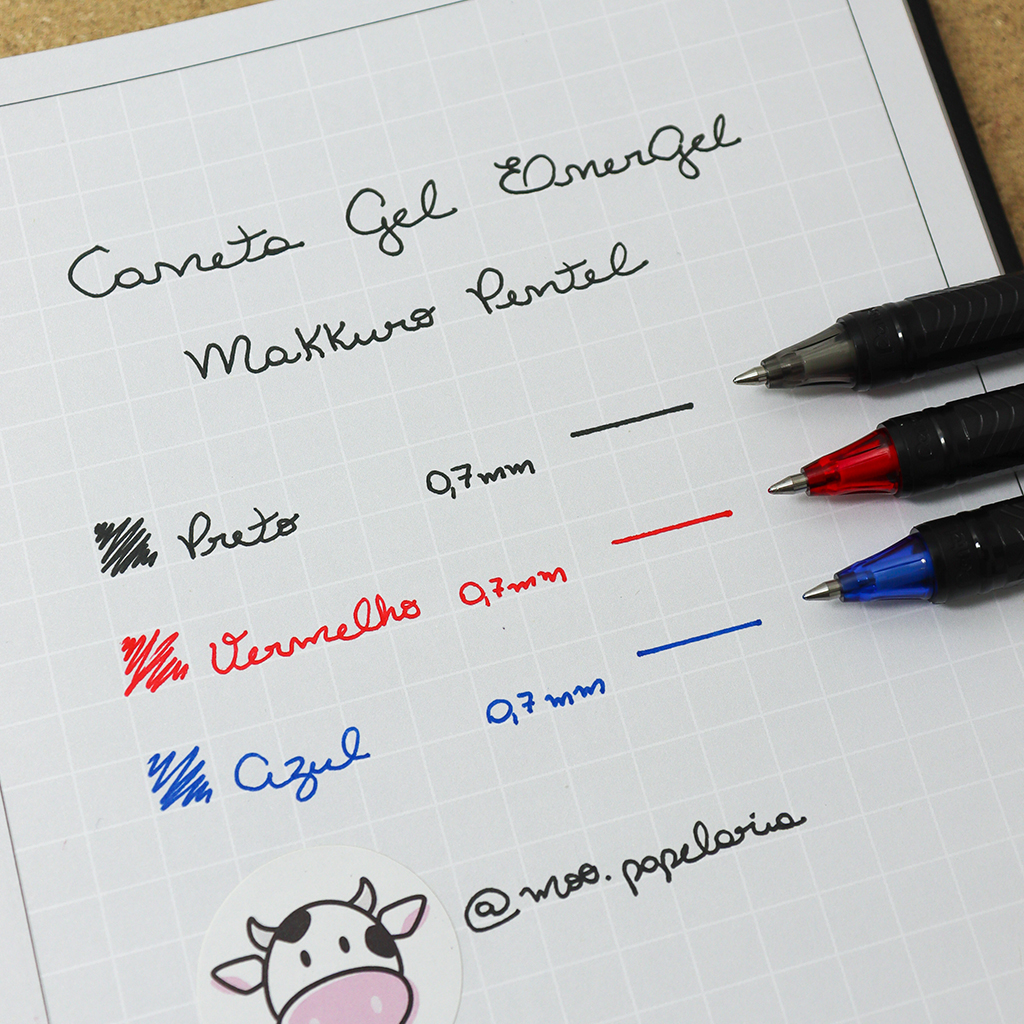 Caneta Gel EnerGel
Makkuro Pentel
Preto 0,7mm
Vermelho 0,7mm
Azul 0,7mm
@moo.papelaria